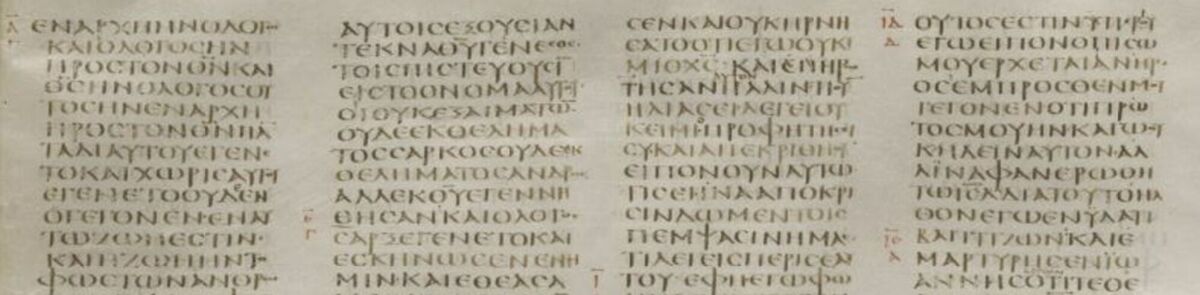 ΕΝΑΡΧΗΗΝΟΛΟΓΟϹ
ΚΑΙΟΛΟΓΟϹΗΝ
ΠΡΟϹΤΟΝΘ̅Ν̅ΚΑΙ
Θ̅Ϲ̅ΗΝΟΛΟΓΟϹΟΥ
ΤΟϹΗΝΕΝΑΡΧΗ
ΠΡΟϹΤΟΝΘ̅Ν̅ΠΑ
ΤΑΔΙΑΥΤΟΥΕΓΕΝΕ
ΤΟΚΑΙΧΩΡΙϹΑΥΤΟΥ
ΕΓΕΝΕΤΟΟΥΔΕΝ
ΟΓΕΓΟΝΕΝΕΝΑΥ
ΤΩΖΩΗΕϹΤΙΝ·
ΚΑΙΗΖΩΗΗΝΤΟ
ΦΩϹΤΩΝΑΝΘΡΩ
ΑΥΤΟΙϹΕΞΟΥϹΙΑΝ
ΤΕΚΝΑΘ̅Υ̅ΓΕΝΕϹΘΑΙ
ΤΟΙϹΠΙϹΤΕΥΟΥϹΙ̅
ΕΙϹΤΟΟΝΟΜΑΑΥΤΟΥ
ΟΙΟΥΚΕΞΑΙΜΑΤΩ̅
ΟΥΔΕΕΚΘΕΛΗΜΑ
ΤΟϹϹΑΡΚΟϹΟΥΔΕΕΚ
ΘΕΛΗΜΑΤΟϹΑΝΔΡΟϹ
ΑΛΛΕΚΘ̅Υ̅ΕΓΕΝΝΗ
ΘΗϹΑΝΚΑΙΟΛΟΓΟϹ
ϹΑΡΞΕΓΕΝΕΤΟΚΑΙ
ΕϹΚΗΝΩϹΕΝΕΝΗ
ΜΙΝΚΑΙΕΘΕΑϹΑ
ϹΕΝΚΑΙΟΥΚΗΡΝΗ
ϹΑΤΟΟΤΙΕΓΩΟΥΚΙ
ΜΙΟΧ̅Ϲ̅ΚΑΙΕΠΗΡΩ
ΤΗϹΑΝΠΑΛΙΝΤΙΟΥ
ΗΛΙΑϹΕΙΛΕΓΕΙΟΥ
ΚΕΙΜΙΠΡΟΦΗΤΗϹΕΙ
ϹΥΚΑΙΑΠΕΚΡΙΘΗΟΥ
ΕΙΠΟΝΟΥΝΑΥΤΩ
ΤΙϹΕΙΙΝΑΑΠΟΚΡΙ
ϹΙΝΔΩΜΕΝΤΟΙϹ
ΠΕΜΨΑϹΙΝΗΜΑϹ
ΤΙΛΕΓΕΙϹΠΕΡΙϹΕΑΥ
ΤΟΥΕΦΗΕΓΩΦΩ
ΟΥΤΟϹΕϹΤΙΝΥΠΕΡΟΥ
ΕΓΩΕΙΠΟΝΟΠΙϹΩ
ΜΟΥΕΡΧΕΤΑΙΑΝΗΡ
ΟϹΕΜΠΡΟϹΘΕΝΜΟΥ
ΓΕΓΟΝΕΝΟΤΙΠΡΩ
ΤΟϹΜΟΥΗΝΚΑΓΩΟΥ
ΚΗΔΕΙΝΑΥΤΟΝΑΛ
ΛΙΝΑΦΑΝΕΡΩΘΗ
ΤΩΙ̅Ϲ̅Λ̅ΔΙΑΤΟΥΤΟΗΛ
ΘΟΝΕΓΩΕΝΥΔΑΤΙ
ΒΑΠΤΙΖΩΝΚΑΙΕ
ΜΑΡΤΥΡΗϹΕΝΙΩ
ΑΝΝΗϹΟΤΙΤΕΘΕ